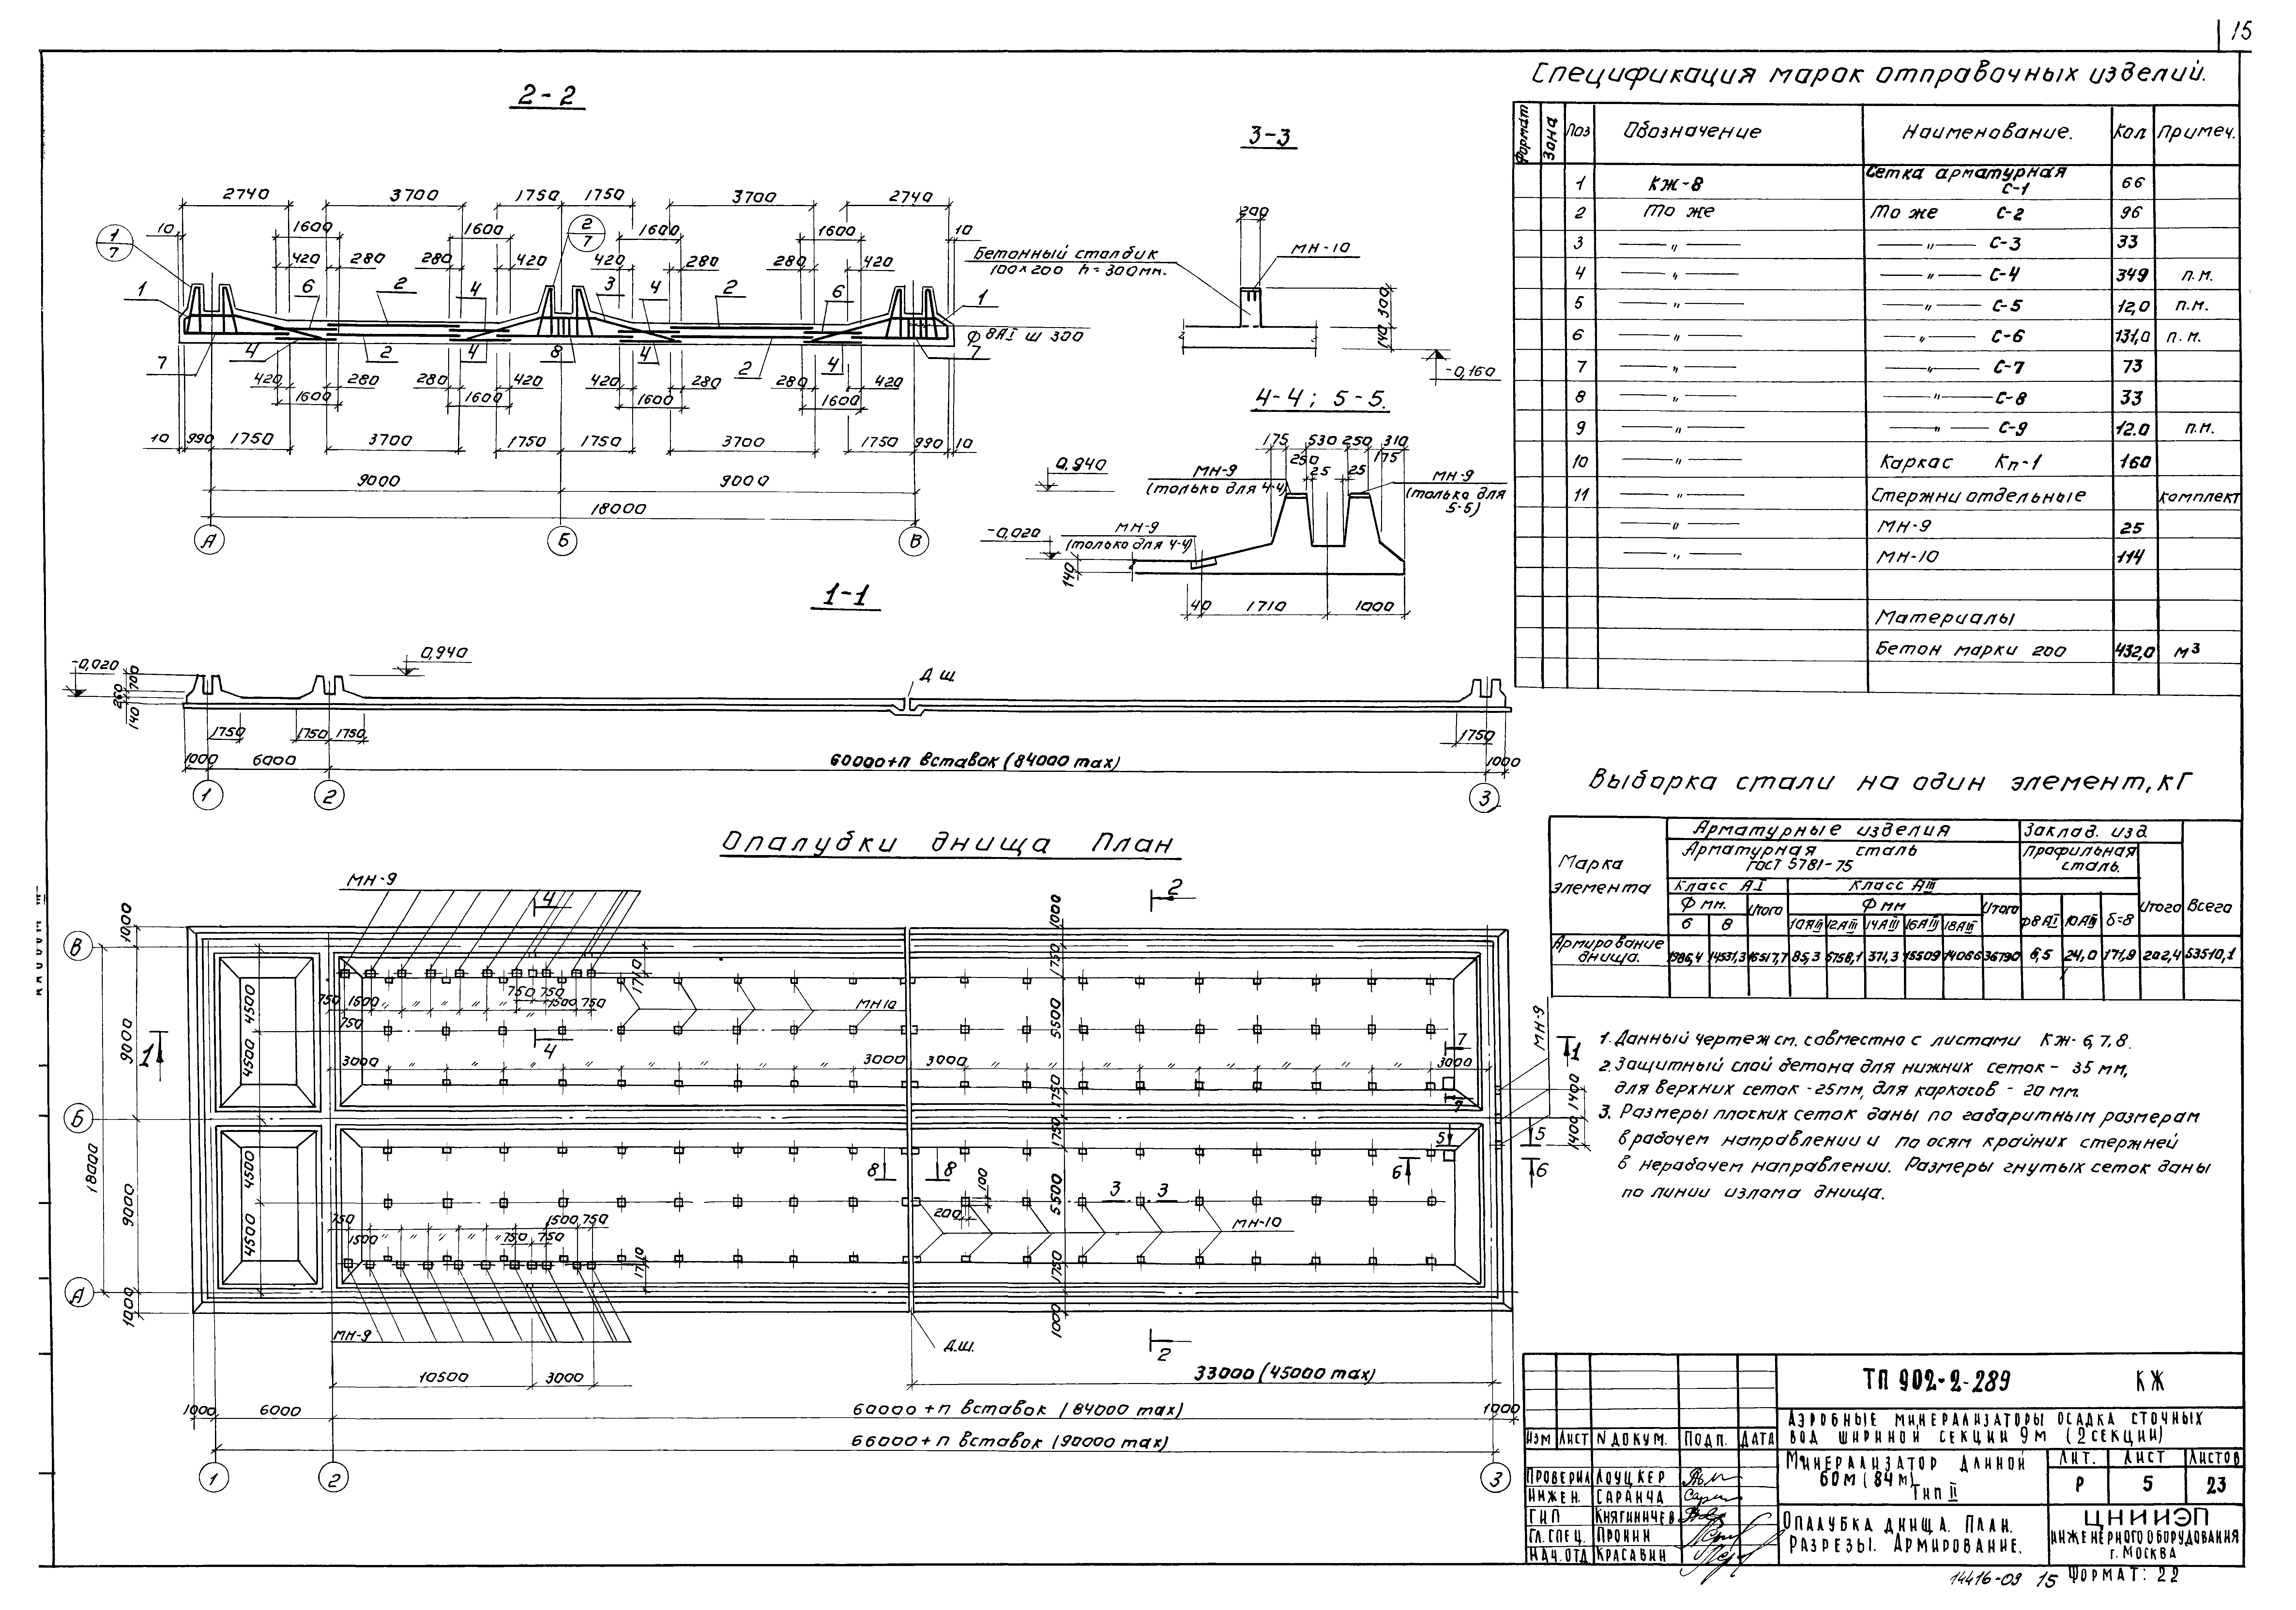 15
2-2
2740 3700 1750 1750 3700 2740
10 1600 1600 1600 1600 10
420 280 280 420 420 280 280 420
1/7
2/7
1 6 2 4 3 4 2 6 1
7 4 2 4 8 4 2 4 7
Ф8АI Ш 300
420 280 280 420 420 280 280 420
1600 1600 1600 1600
10 990 1750 3700 1750 1750 3700 1750 990 10
9000 9000
18000
А Б В
3-3
200
МН-10
Бетонный столбик
100×200 h=300мм.
140 300
-0,160
4-4; 5-5.
175 530 250 310
250 25 25 175
0,940
МН-9
(только для 4-4)
МН-9
(только для
5-5)
-0,020
МН-9
(только для 4-4)
140
40 1710 1000
1-1
-0,020
0,940
Д.Ш.
140 260 700
1750 1750 1750 1750
1000 6000 60000+п вставок (84000 max) 1000
1 2 3
Опалубки днища План
МН-9
4
2
В
Б
А
1000 9000 9000 1000
18000
4500 4500
4500 4500
750 1500 750 750 1500 750
750
1710
МН10
4
1
1
3000 3000 3000 3000
1000 1750 5500 1750
1750 5500 1750 1000
7
7
МН-9
1400 1400
5 5
6 6
8 8
3 3
100
200
МН-10
750 1500 750
1500 750 750
1710
МН-9
Д.Ш.
2
10500 3000
33000 (45000 max)
1000 6000 60000+п вставок (84000 max) 1000
66000+п вставок (90000 max)
1 2 3
Спецификация марок отправочных изделий.
Формат Зона Поз Обозначение Наименование. Кол Примеч.
1 КЖ-8 Сетка арматурная С-1 66
2 То же То же С-2 96
3 —〃— —〃— С-3 33
4 —〃— —〃— С-4 349 п.м.
5 —〃— —〃— С-5 12,0 п.м.
6 —〃— —〃— С-6 131,0 п.м.
7 —〃— —〃— С-7 73
8 —〃— —〃— С-8 33
9 —〃— —〃— С-9 12.0 п.м.
10 —〃— Каркас Кп-1 160
11 —〃— Стержни отдельные комплект
—〃— МН-9 25
—〃— МН-10 114
Материалы
Бетон марки 200 432,0 м3
Выборка стали на один элемент, кг
Марка элемента
Арматурные изделия Заклад. изд.
Арматурная сталь ГОСТ 5781-75
Профильная сталь.
Класс АI Класс АIII
Ф мм. Итого Ф мм Итого Итого Всего
6 8 10АIII 12АIII 14АIII 16АIII 18АIII Ф8АI 10АIII δ=8
Армирование днища. 1986,4 14531,3 16517,7 85,3 6758,1 371,3 15509 14066 36790 6,5 24,0 171,9 202,4 53510,1
1. Данный чертеж см. совместно с листами КЖ-6,7,8.
2. Защитный слой бетона для нижних сеток - 35 мм,
для верхних сеток - 25мм, для каркасов - 20 мм.
3. Размеры плоских сеток даны по габаритным размерам
в рабочем направлении и по осям крайних стержней
в нерабочем направлении. Размеры гнутых сеток даны
по линии излома днища.
ТП 902-2-289 КЖ
Аэробные минерализаторы осадка сточных
вод шириной секции 9м (2секции)
Изм Лист N докум. Подп. Дата
Минерализатор длиной
60м (84м)
Тип II
Лит. Лист Листов
Р 5 23
Проверил Лоуцкер
Инжен. Саранча
ГИП Княгиничев
Гл.спец. Пронин
Нач.отд Красавин
Опалубка днища. План.
Разрезы. Армирование.
ЦНИИЭП
инженерного оборудования
г. Москва
14416-03 15 Формат: 22